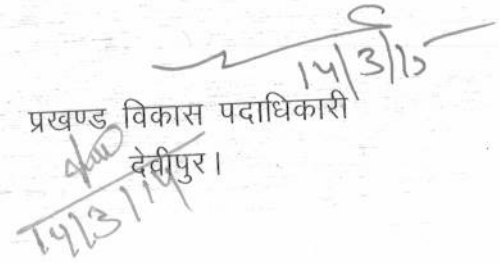 14/3/15
प्रखण्ड विकास पदाधिकारी
देवीपुर।
14/3/14